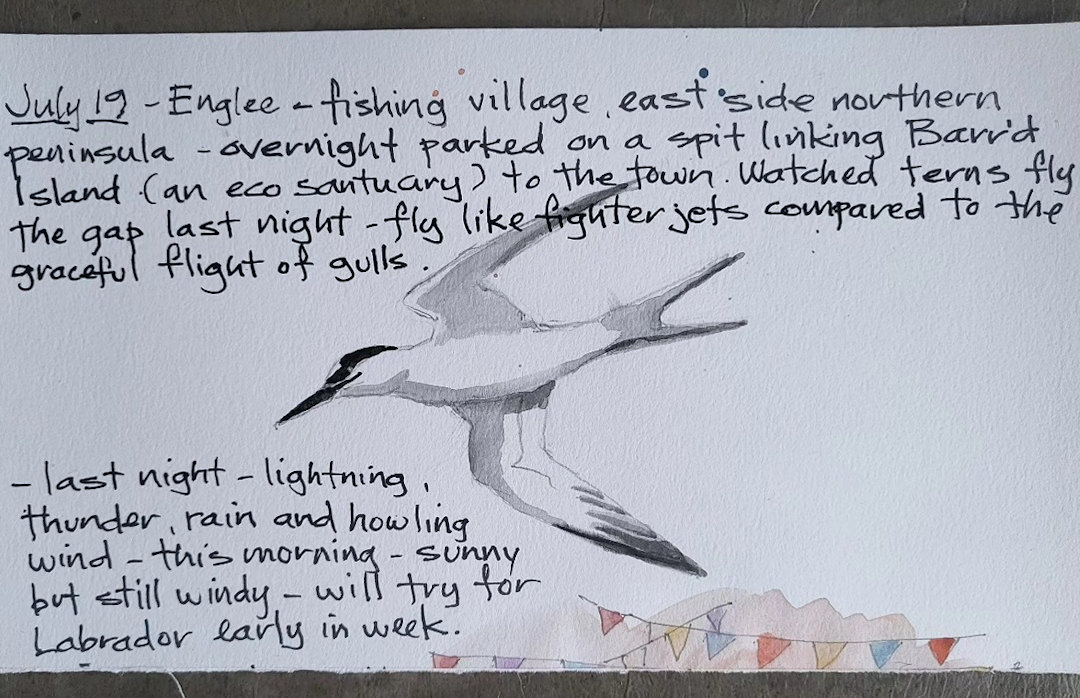 July 19 - Englee - fishing village, east side northern
peninsula - overnight parked on a spit linking Barr'd
Island (an eco santuary) to the town. Watched terns fly
the gap last night - fly like fighter jets compared to the
graceful flight of gulls.
- last night - lightning,
thunder, rain and howling
wind - this morning - sunny
but still windy - will try for
Labrador early in week.